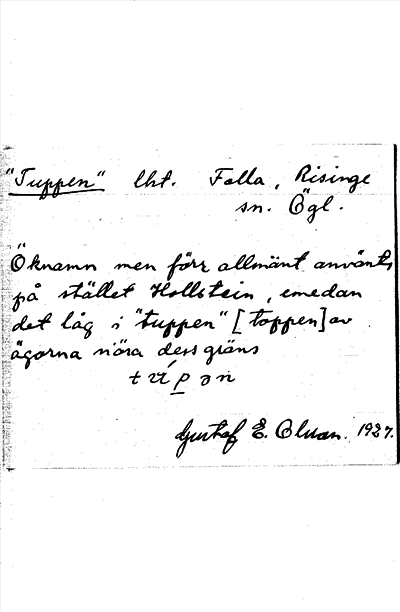 "Tuppen" lht. Falla, Risinge
sn. Ögl.
Öknamn men förr allmänt använts
på stället Hollstein, emedan
det låg i "tuppen" [toppen] av
ägorna nära dess gräns
Gustaf E. 1927.